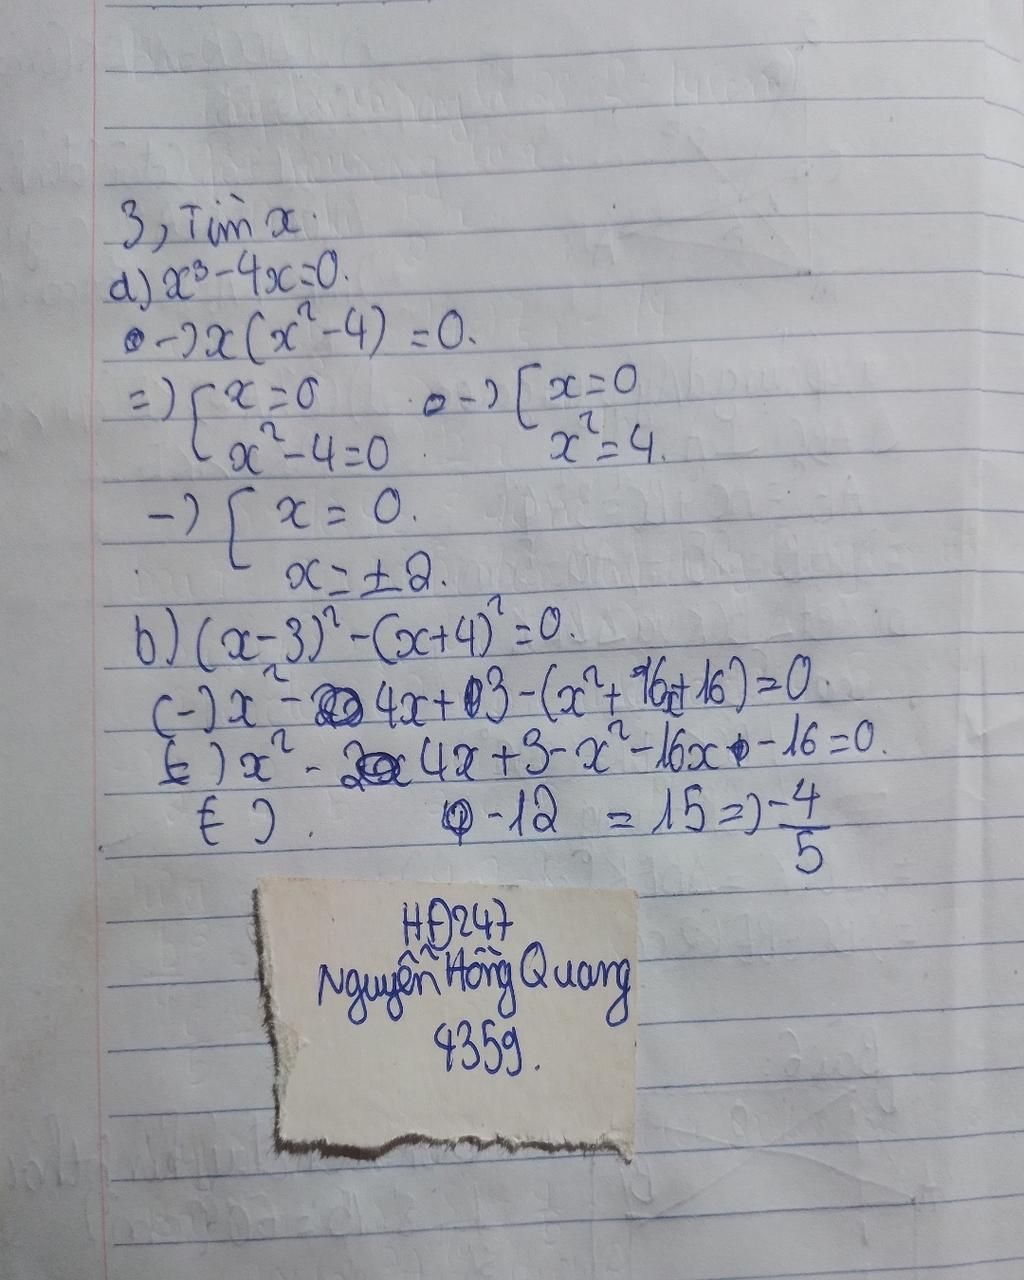 3, Tìm x.
a) x³-4x=0.
-) x(x²-4) = 0.
=) [ x=0 -) [ x=0
x²-4=0 x²=4.
-) [ x = 0.
x=±2.
b) (x-3)²-(x+4)²=0.
(-) x² - 4x+3-(x²+16x+16)=0.
(-) x² - 4x+3-x²-16x-16=0.
(-) -12 = 15 =) -4/5
HĐ247
Nguyễn Hồng Quang
4359.